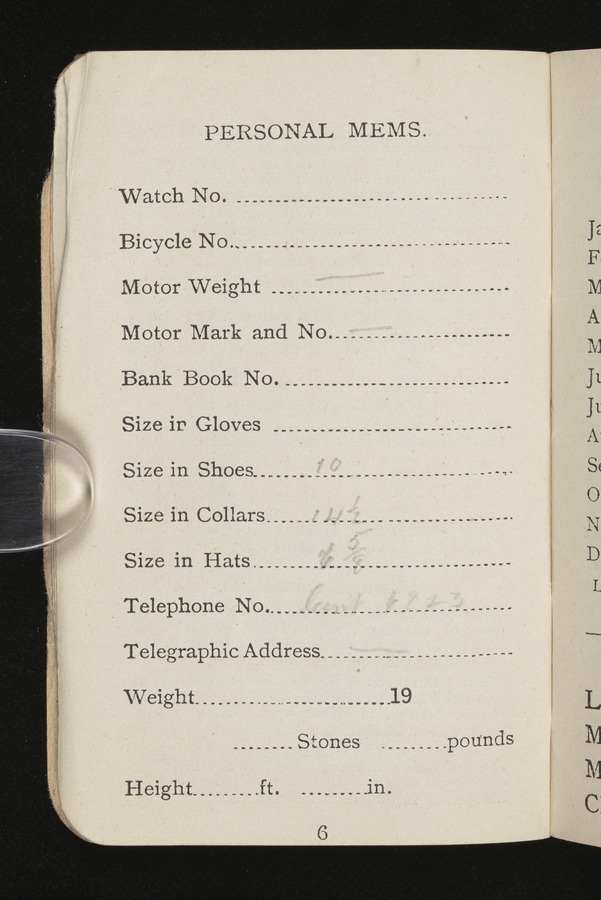 PERSONAL MEMS.
Watch No.
Bicycle No.
Motor Weight
Motor Mark and No.
Bank Book No.
Size in Gloves
Size in Shoes 10
Size in Collars 14½
Size in Hats 6⅝
Telephone No. Cent 6923
Telegraphic Address
Weight 19
Stones pounds
Height ft. in.
6
Ja
F
M
A
M
Ju
Ju
A
Se
O
N
D
L
L
M
M
C